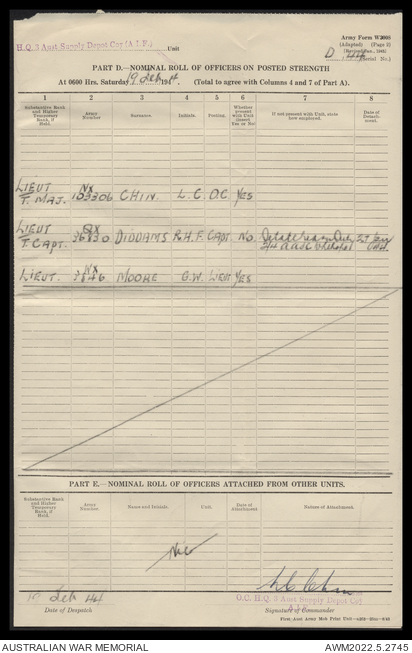 Army Form W3008
(Adapted) (Page 2)
(Revised Jan., 1943)
H.Q. 3 Aust Supply Depot Coy (A.I.F.) Unit
(Serial No.)
PART D.—NOMINAL ROLL OF OFFICERS ON POSTED STRENGTH
At 0600 Hrs. Saturday 19 Feb 1944. (Total to agree with Columns 4 and 7 of Part A).
1 2 3 4 5 6 7 8
Substantive Rank and Higher Temporary Rank, if Held. Army Number Surname. Initials. Posting. Whether present with Unit (insert Yes or No) If not present with Unit, state how employed. Date of Detachment.
LIEUT NX
T. MAJ. 103306 CHIN. L.C. O.C. YES
LIEUT
T. CAPT. DIDDAMS R.H.F. CAPT. NO
NX
LIEUT. MOORE G.W. LIEUT YES
PART E.—NOMINAL ROLL OF OFFICERS ATTACHED FROM OTHER UNITS.
Substantive Rank and Higher Temporary Rank, if Held. Army Number Name and Initials. Unit. Date of Attachment Nature of Attachment.
Feb 44
O.C. H.Q. 3 Aust Supply Depot Coy
A.I.F.
Date of Despatch Signature of Commander
AUSTRALIAN WAR MEMORIAL AWM2022.5.2745